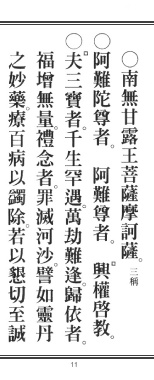 ○南無甘露王菩薩摩訶薩。三稱
○阿難陀尊者。阿難尊者。興權啓教。
○夫三寶者。千生罕遇。萬劫難逢。歸依者。
福增無量。禮念者。罪滅河沙。譬如靈丹
之妙藥。療百病以蠲除。若以懇切至誠
11